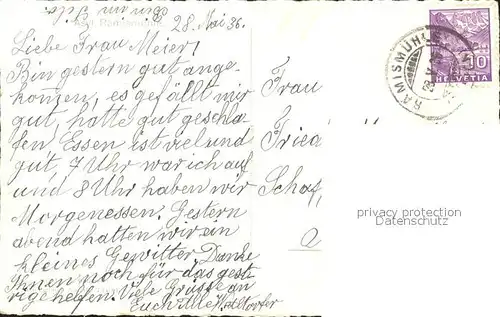 28. Mai 36.
Liebe Frau Meier!
Bin gestern gut ange-
kommen, es gefällt mir
gut, hatte gut geschla
fen. Essen ist viel und
gut, 7 Uhr war ich auf
und 8 Uhr haben wir
Morgenessen. Gestern
abend hatten wir ein
kleines Gewitter Danke
Ihnen noch für das geste
rige helfen. Viele Grüsse an
Euch Alle
Frau
Fried
Schaf,
a
RAMISMÜHLE
10
HELVETIA
privacy protection
Datenschutz